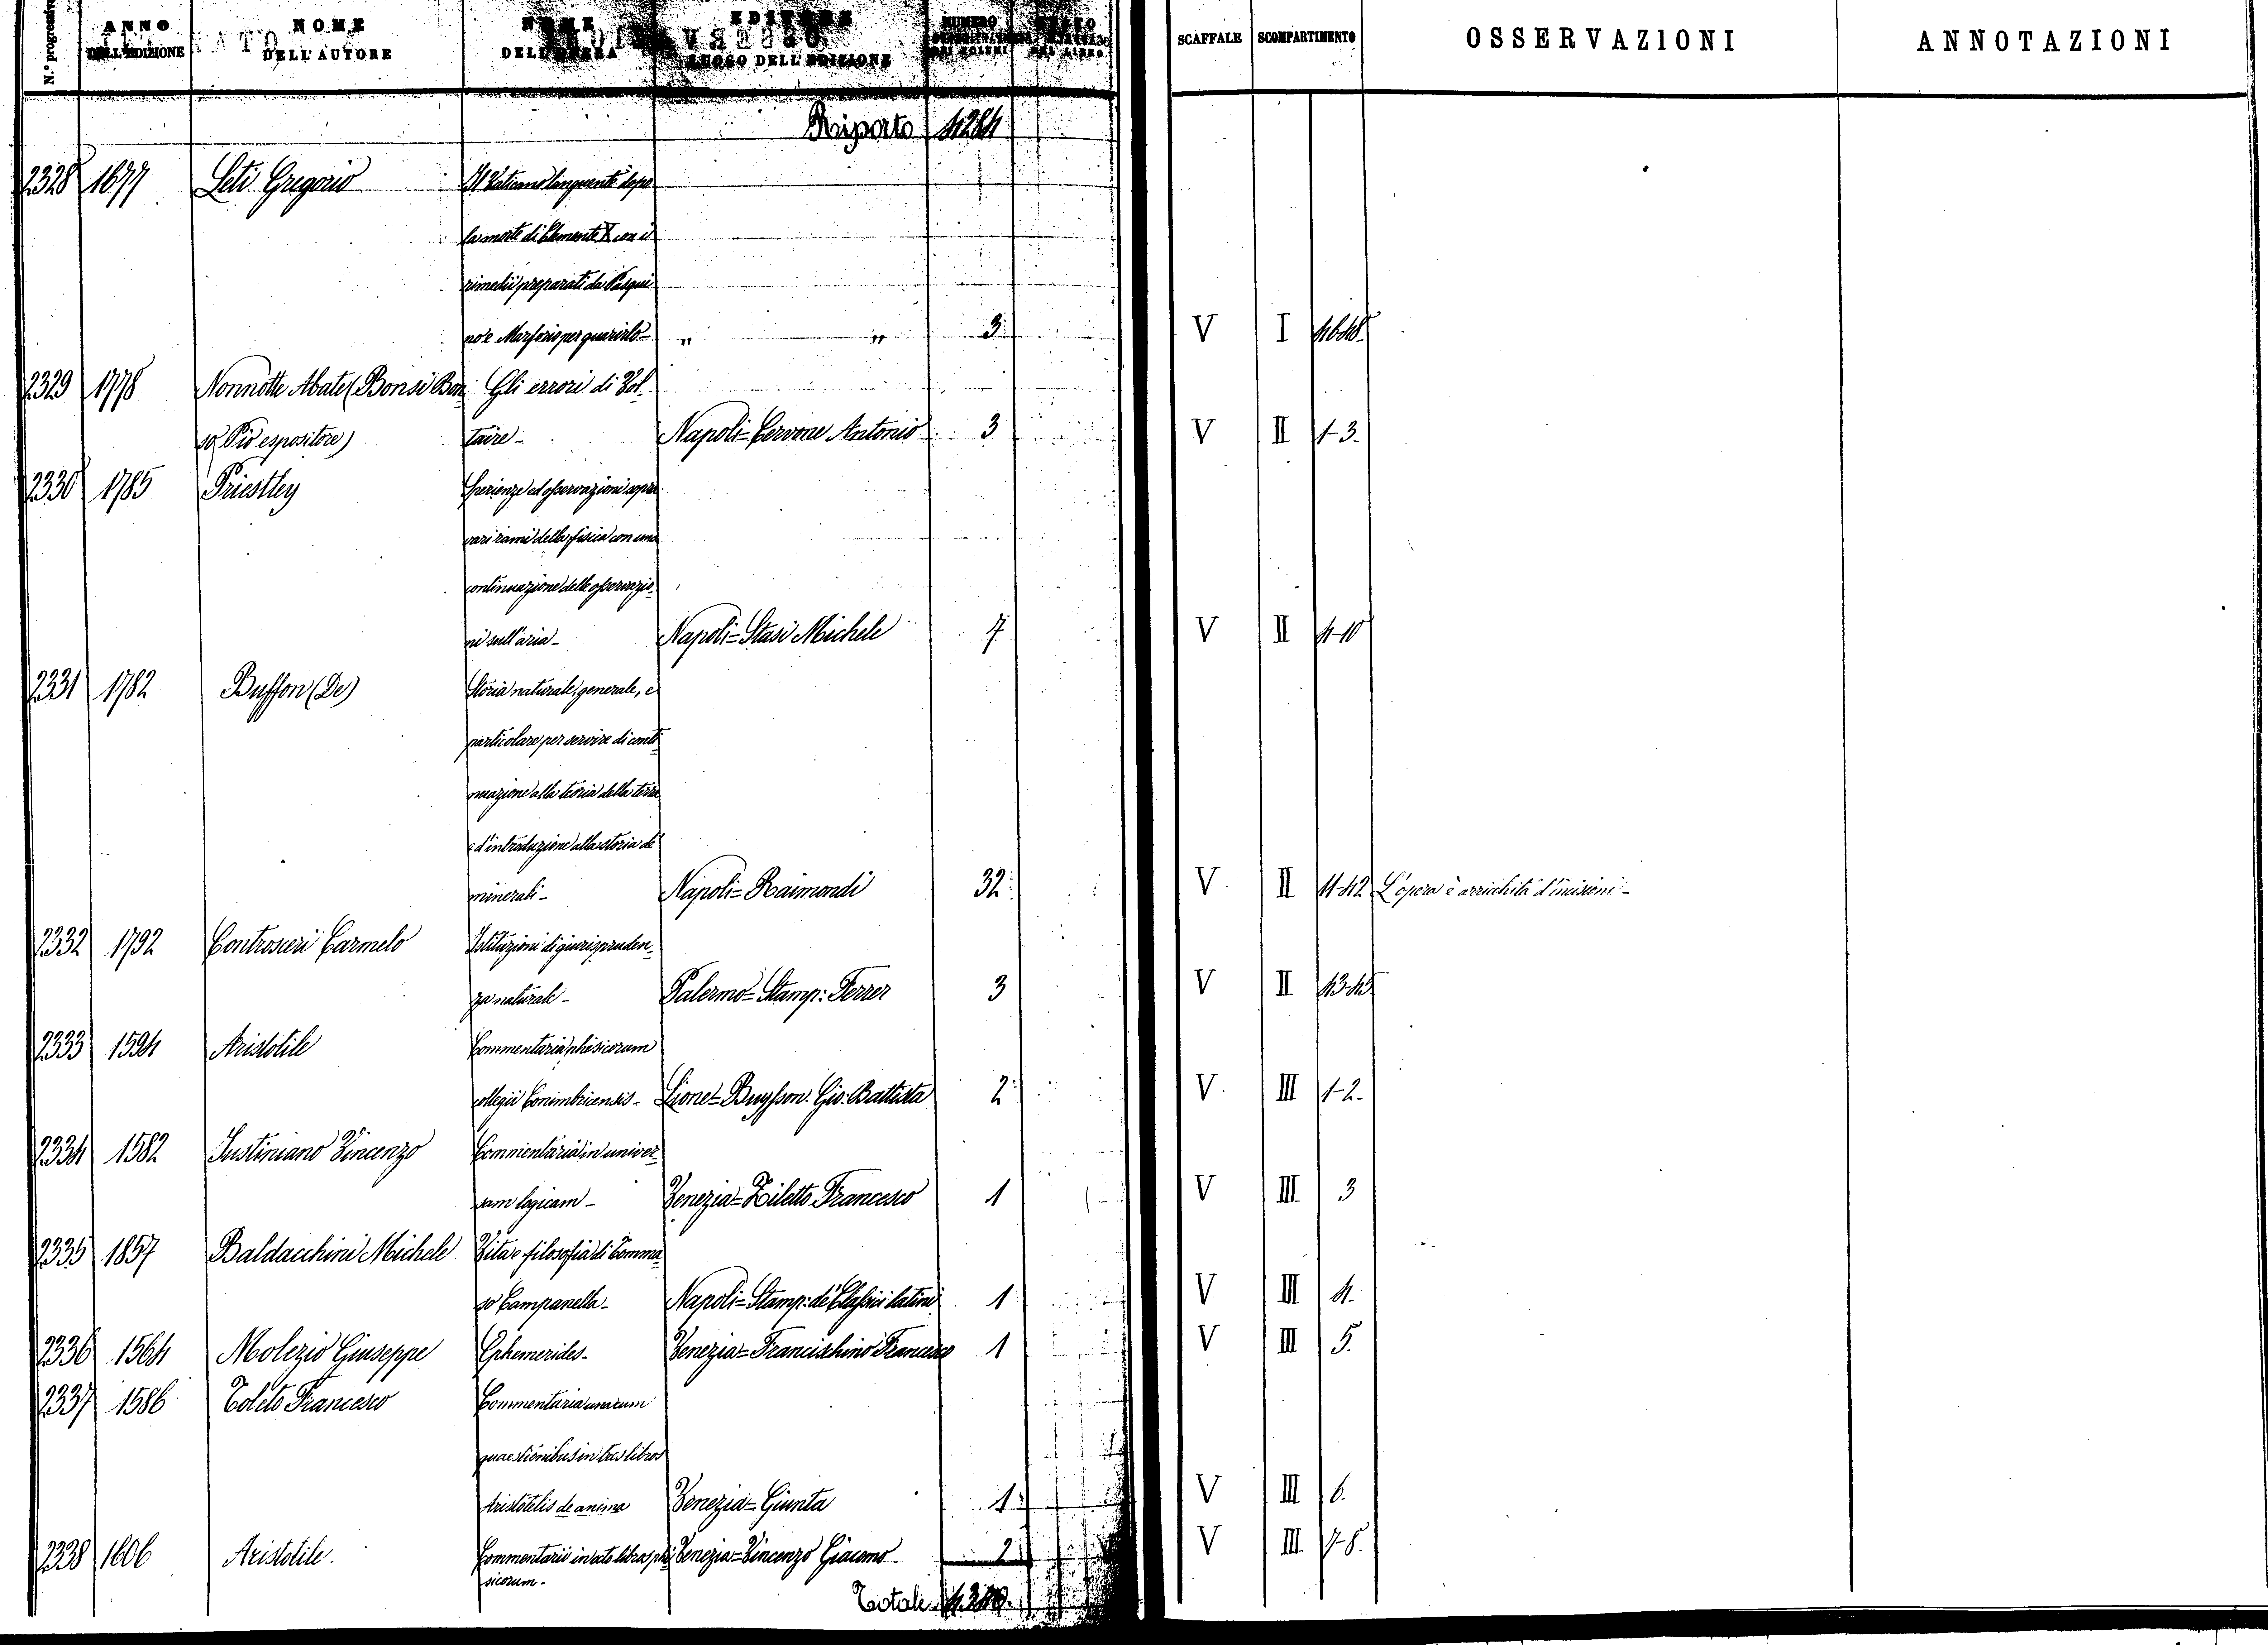 N.° progressivo ANNO DELL'EDIZIONE NOME DELL'AUTORE NOME DELL'OPERA EDITORE LUOGO DELL'EDIZIONE NUMERO DEI VOLUMI STATO DEL LIBRO SCAFFALE SCOMPARTIMENTO OSSERVAZIONI ANNOTAZIONI
Riporto 4284
2328 1677 Leti Gregorio Il Vaticano languente dopo
la morte di Clemente X con i
rimedii preparati da Pasqui
no e Marforio per guarirlo- " " 3 V I 46-48.
2329 1778 Nonnotte Abate (Bonsi Bon Gli errori di Vol-
so Pio espositore) taire- Napoli=Cervone Antonio 3 V II 1-3.
2330 1785 Priestley Sperienze ed osservazioni sopra
vari rami della fisica con una
continuazione delle osservazio-
ni sull'aria- Napoli=Stasi Michele 7 V II 4-10
2331 1782 Buffon (De) Storia naturale, generale, e
particolare per servire di conti-
nuazione alla teoria della terra
e d'introduzione alla storia de'
minerali- Napoli=Raimondi 32 V II 11-42 L'opera è arricchita d'incisioni-
2332 1792 Controsceri Carmelo Istituzioni di giurispruden-
za naturale- Palermo=Stamp: Ferrer 3 V II 43-45
2333 1594 Aristotile Commentaria phisicorum
collegii Conimbricensis- Lione=Buysson Gio. Battista 2 V III 1-2.
2334 1582 Iustiniano Vincenzo Commentaria in univer-
sam logicam- Venezia=Ziletto Francesco 1 V III 3
2335 1857 Baldacchini Michele Vita e filosofia di Tomma-
so Campanella- Napoli=Stamp: de' Classici latini 1 V III 4.
2336 1564 Molezio Giuseppe Ephemerides- Venezia=Francischino Francesco 1 V III 5.
2337 1586 Toleto Francesco Commentaria una cum
quaestionibus in tres libros
Aristotelis de anima Venezia=Giunta 1 V III 6.
2338 1606 Aristotile. Commentarii in octo libros phi- Venezia=Vincenzo Giacomo 2 V III 7-8.
sicorum-
Totale 4340.